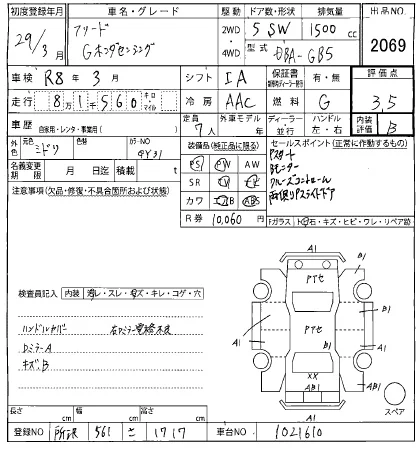 初度登録年月 車名・グレード 駆動 ドア数・形状 排気量 出品NO
29/3月 フリード Gホンダセンシング 2WD 4WD 5 SW 1500 cc 2069
型式 DBA-GB5
車検 R8年3月 シフト IA 保証書 有・無 評価点
走行 81560 キロ マイル 冷房 AAC 燃料 G 3.5
車歴 自家用・レンタ・事業用( ) 定員 7人 外車モデル 年 ディーラー 並行 ハンドル 左・右 内装評価 B
元色 ミドリ 色替 カラーNO GY31 装備品(純正品に限る) セールスポイント(正常に作動するもの)
名義変更期限 月 日迄 積載 t PS PW AW
注意事項(欠品・修復・不具合箇所および状態) SR TV
カワ ABS
Pスタート
Bモニター
クルーズコントロール
両側Pスライドドア
R券 10,060円 Fガラス 石・キズ・ヒビ・ワレ・リペア跡
検査員記入 内装 ・スレ・キズ・キレ・コゲ・穴
ハンドルカバー 右Dミラー電格不良
DミラーA
キズB
A1
B1
PTセ
A1
PTセ
A1
B1
XX
AB1
A1
スペア
長さ cm 幅 cm 高さ cm
登録NO 所沢 501 さ 1717 車台NO 1021610